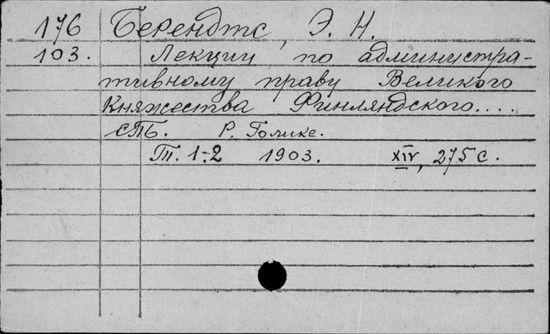 176 Берендтс, Э. Н.
103. Лекции по администра-
тивному праву Великого
Княжества Финляндского....
СПб. Р. Голике.
Т. 1-2 1903. XIV, 275 с.